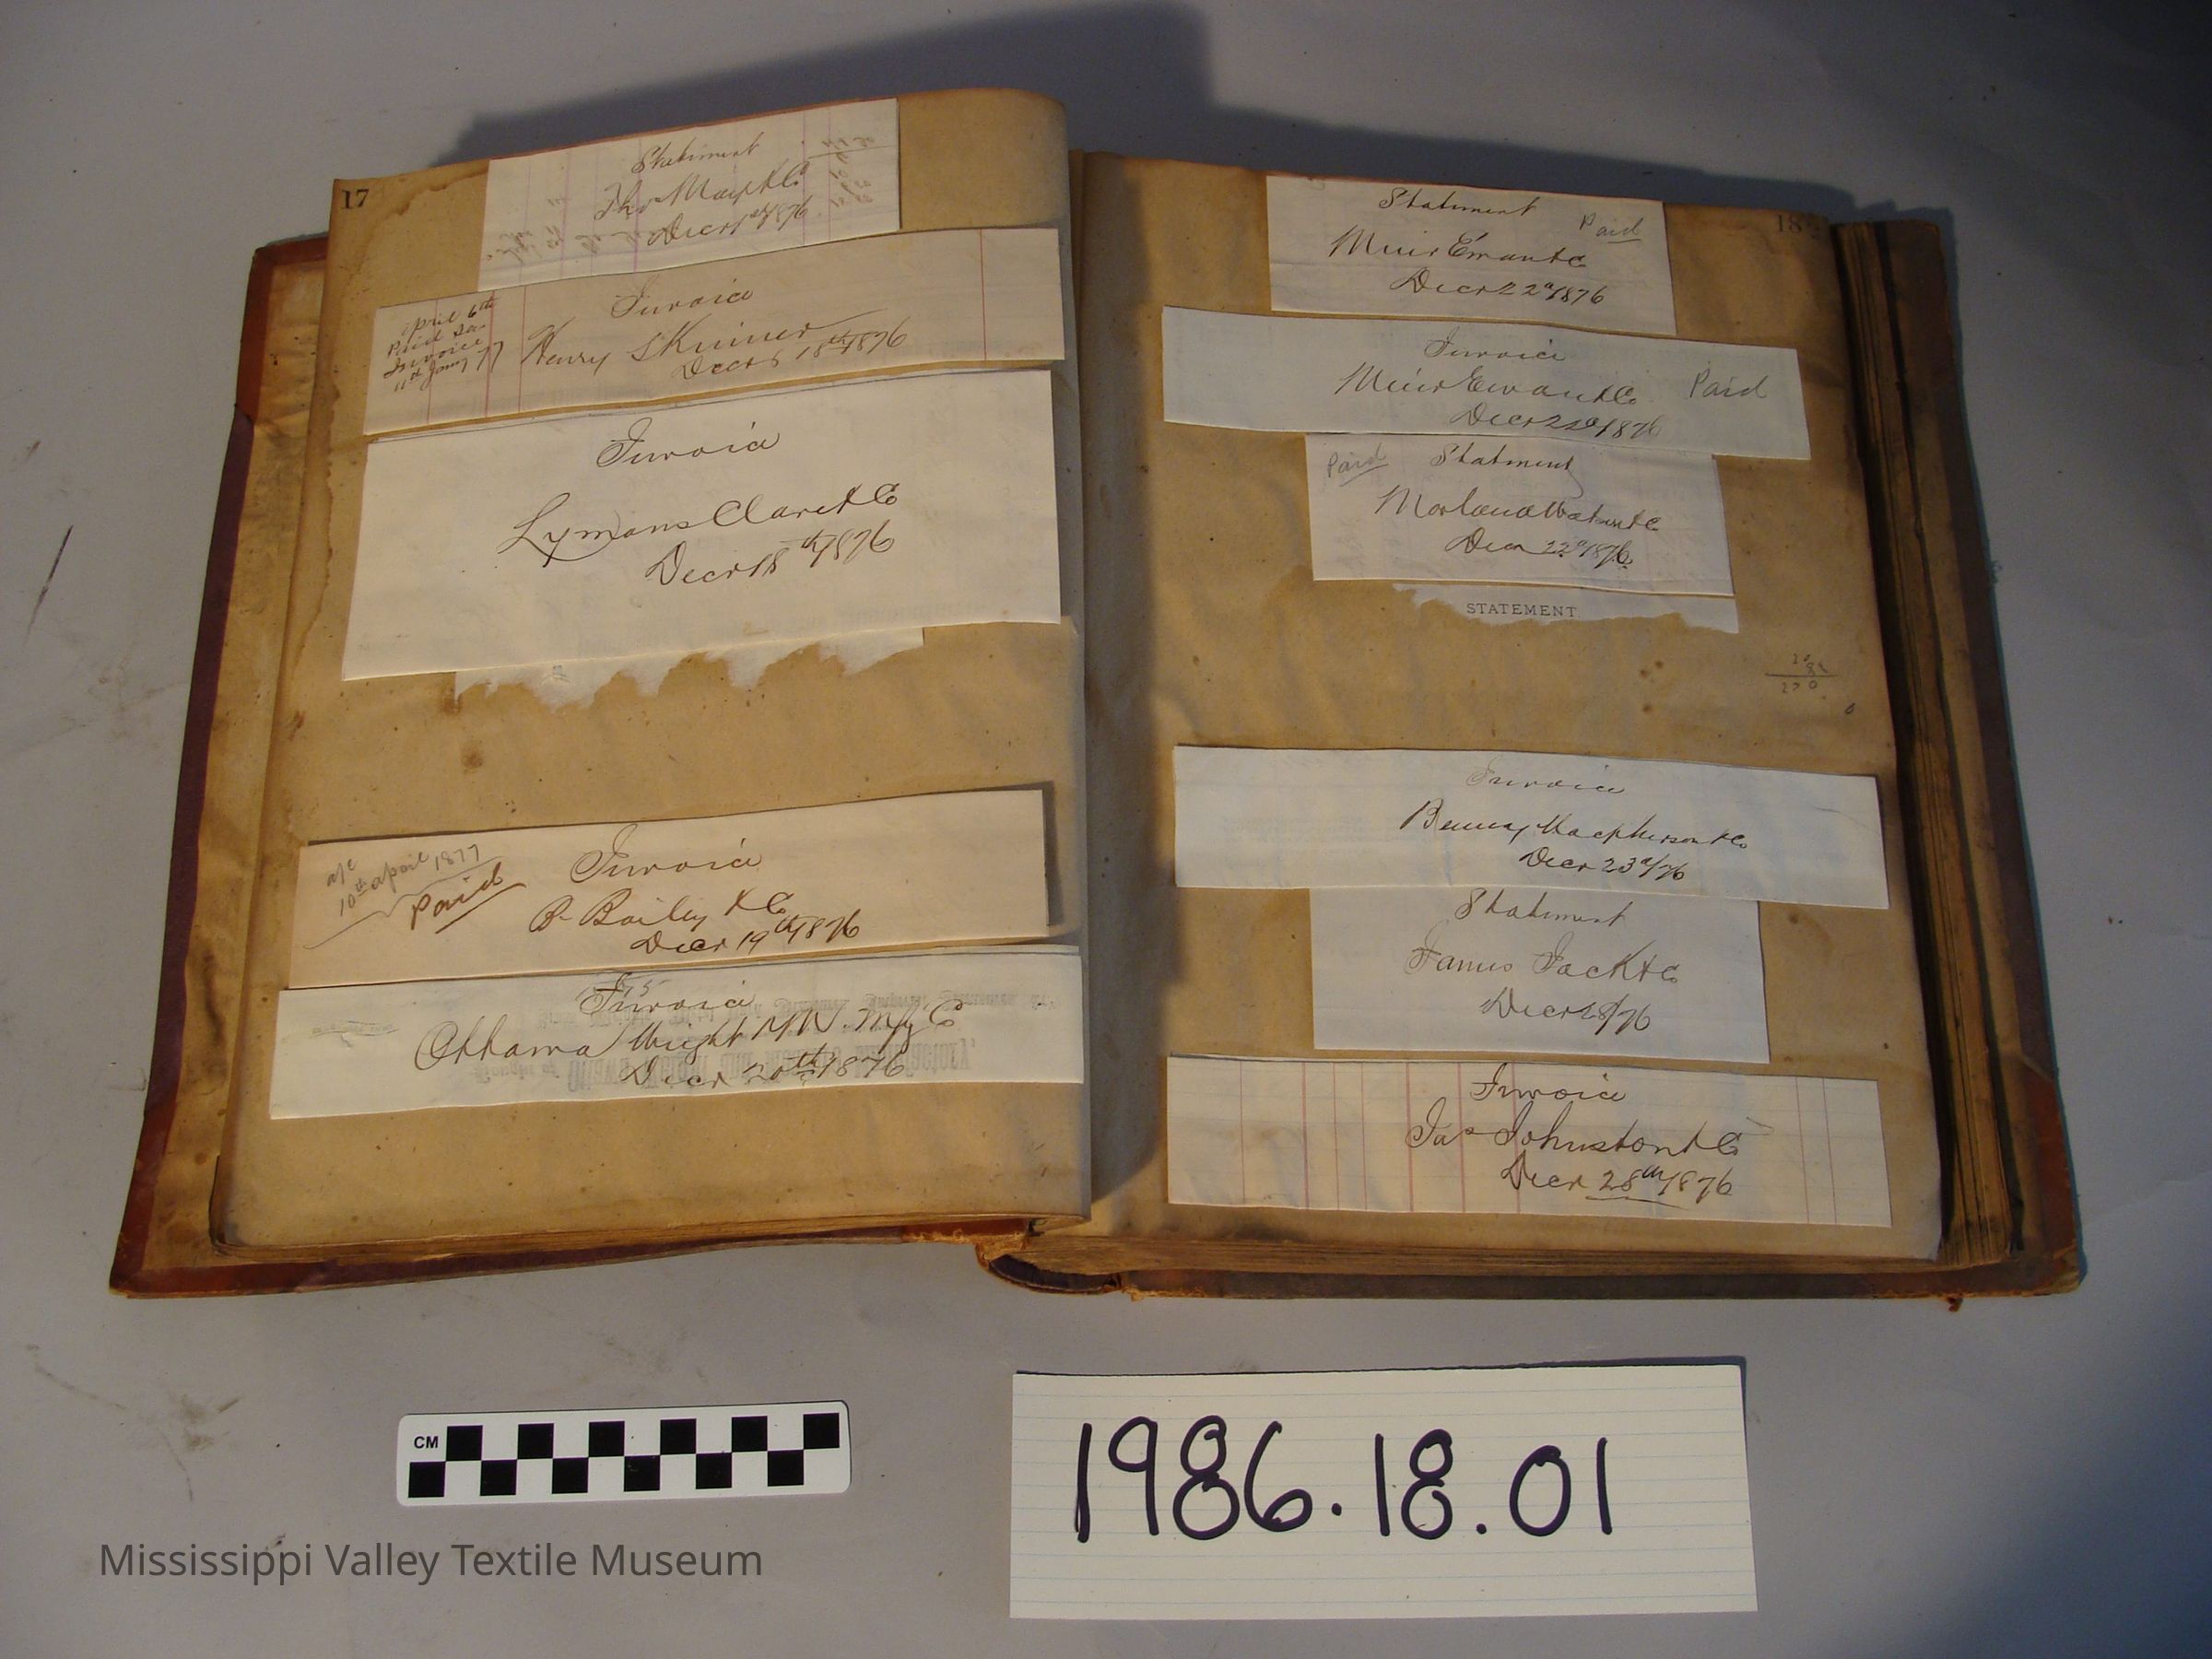 17
Statement
Thos May & Co
Decr 1st 1876
April 6th
Paid
Invoice
11th Jany 77
Invoice
Henry Skinner
Decr 18th 1876
Invoice
Lymans Clare & Co
Decr 18th 1876
a/c
10th april 1877
Paid
Invoice
B Bailey & Co
Decr 19th 1876
Invoice
Ottawa Wright Mfg Co
Decr 20th 1876
18
Statement
Paid
Muir Ewan & Co
Decr 22d 1876
Invoice
Muir Ewan & Co
Paid
Decr 22d 1876
Paid
Statment
Morland Watson & Co
Decr 22d 1876
STATEMENT
Invoice
Benny Macpherson & Co
Decr 23d/76
Statement
James Jack & Co
Decr 28/76
Invoice
Jas Johnston & Co
Decr 28th 1876
CM
1986.18.01
Mississippi Valley Textile Museum